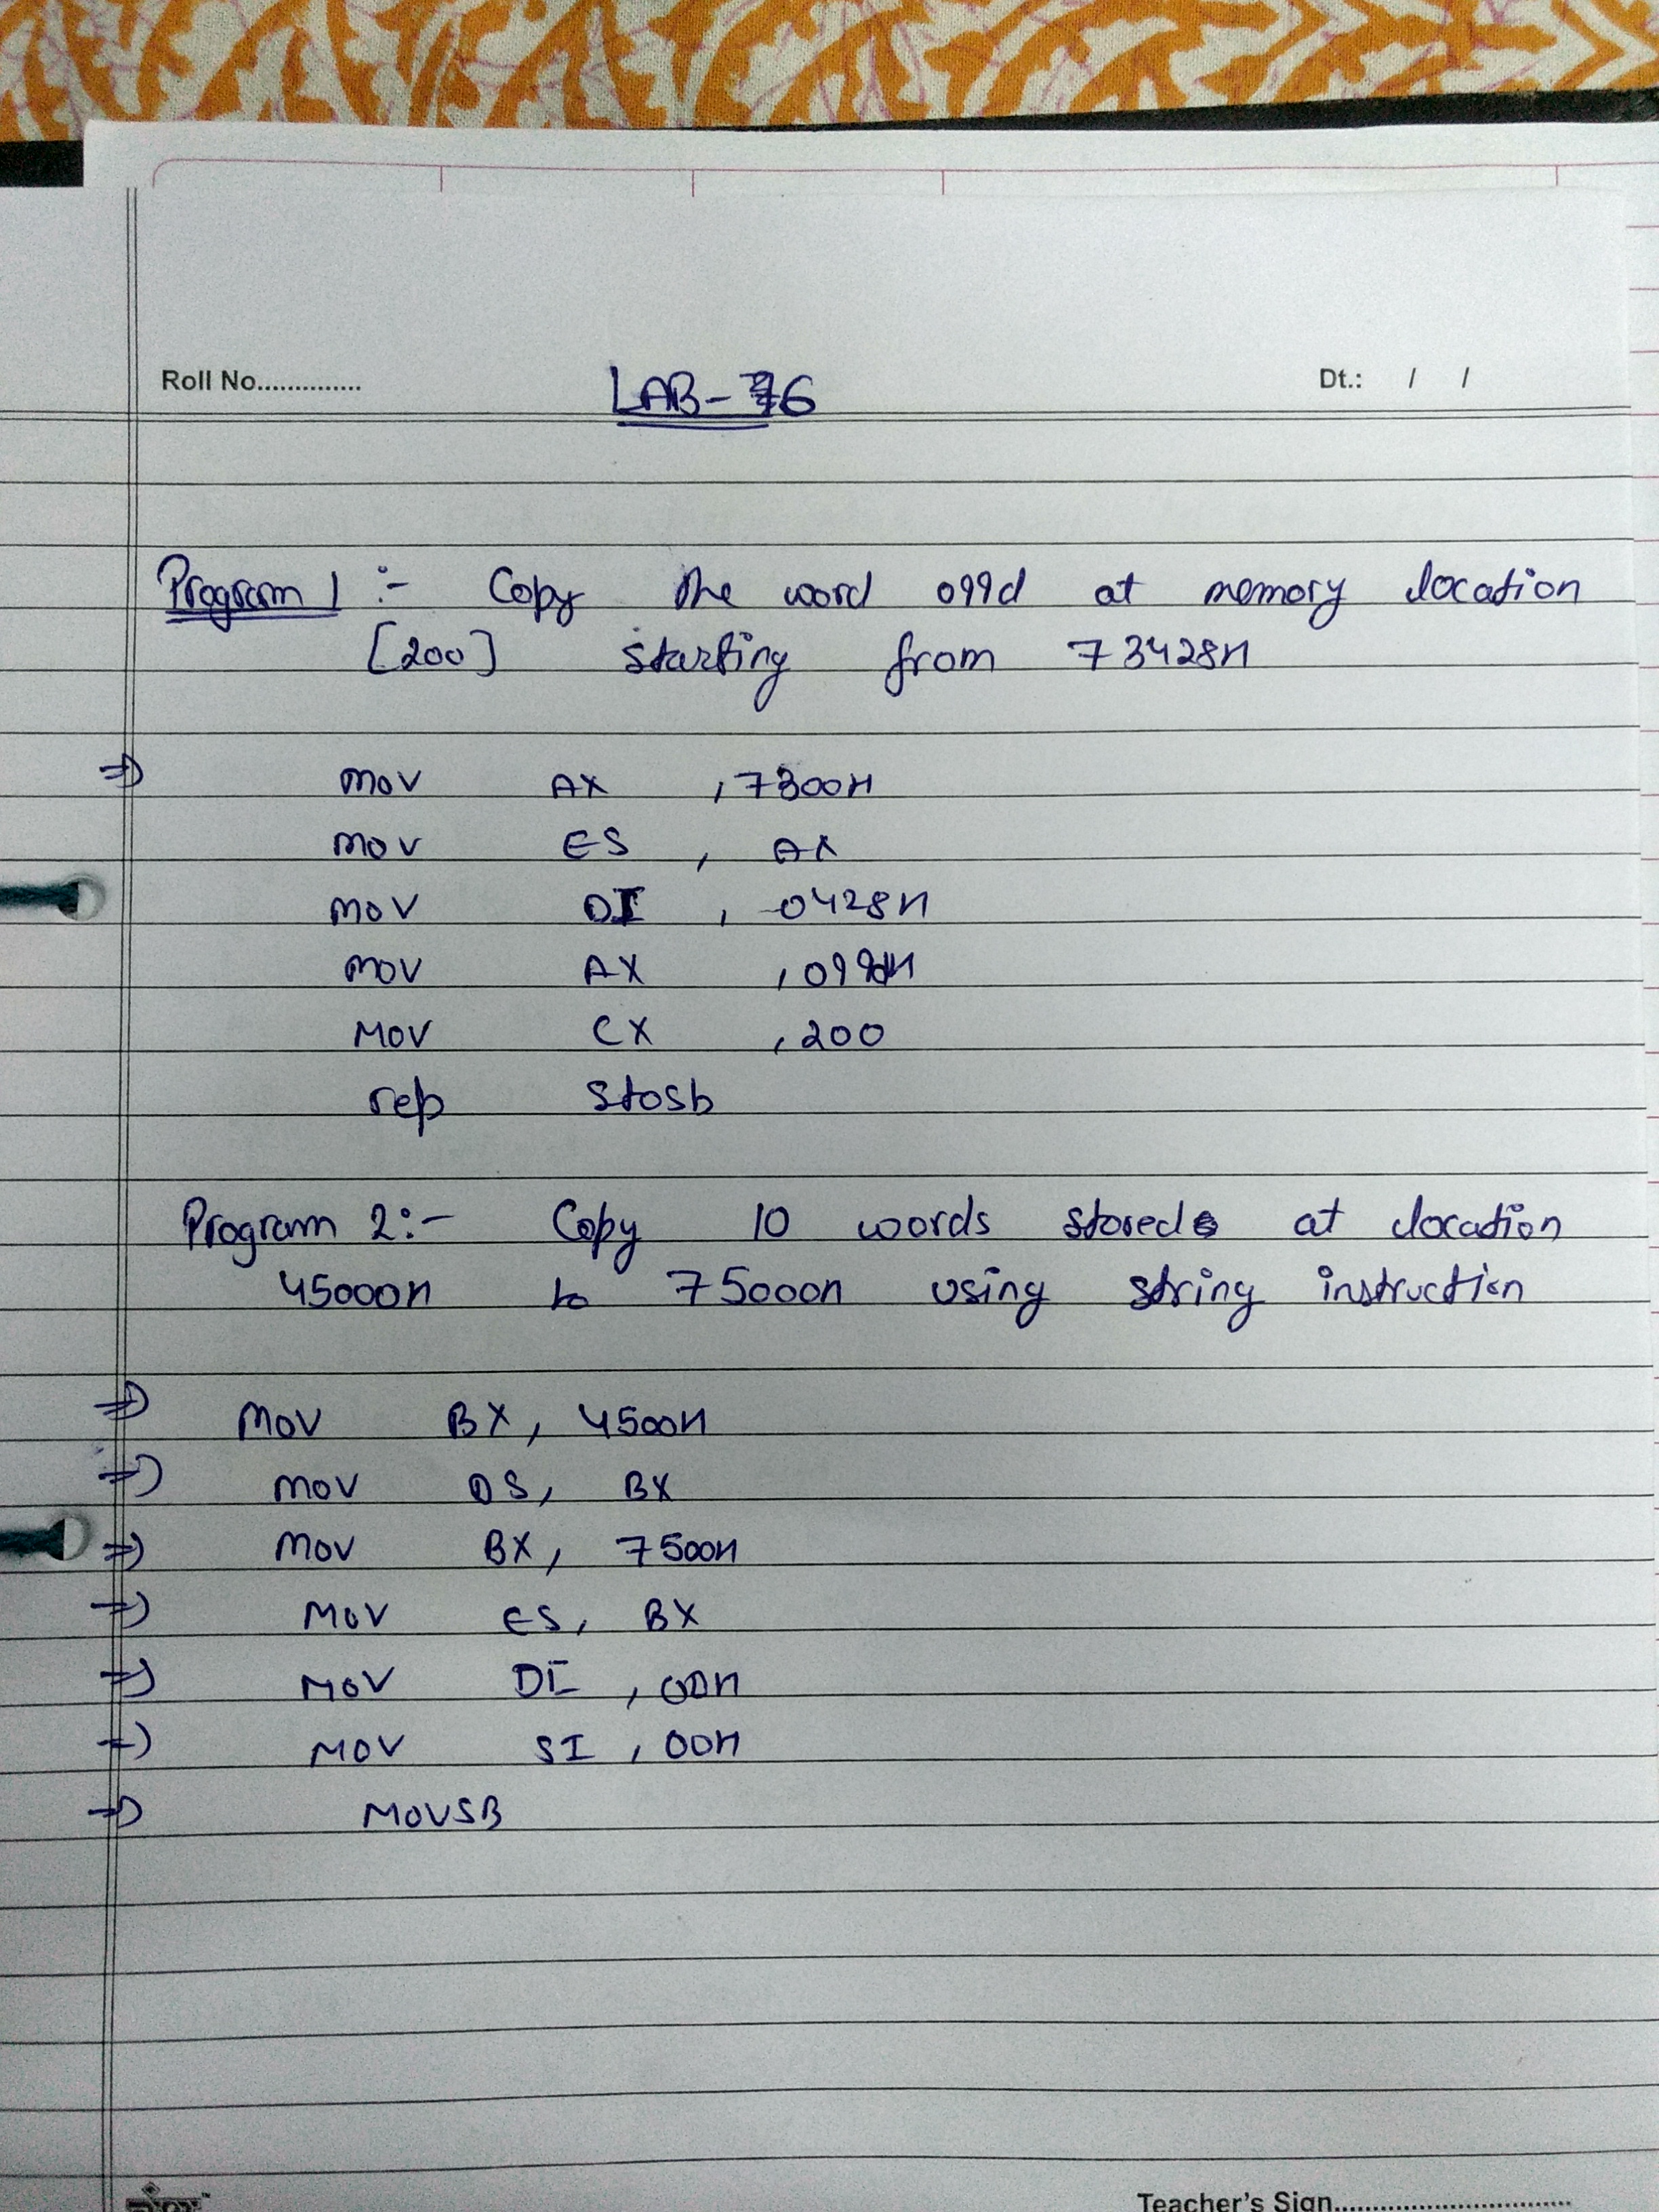 Roll No..............
LAB-6
Dt.: / /
Program 1 :- Copy the word 099d at memory location
[200] starting from 73428H
⇒ mov AX , 7300H
mov ES , AX
mov DI , 0428H
mov AX , 099dH
Mov CX , 200
rep stosb
Program 2:- Copy 10 words stored at location
45000H to 75000H using string instruction
⇒ Mov BX, 4500H
⇒ mov DS, BX
⇒ mov BX, 7500H
⇒ Mov ES, BX
⇒ Mov DI , 00H
⇒ Mov SI , 00H
⇒ MOVSB
Teacher's Sign..............................